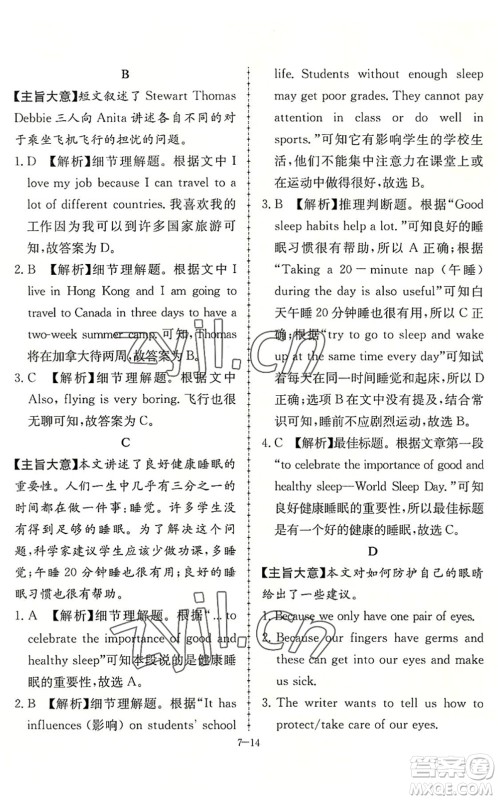 B
【主旨大意】短文叙述了 Stewart Thomas
Debbie 三人向 Anita 讲述各自不同的对
于乘坐飞机飞行的担忧的问题。
1. D 【解析】细节理解题。根据文中 I
love my job because I can travel to a
lot of different countries. 我喜欢我的
工作因为我可以到许多国家旅游可
知,故答案为 D。
2. B 【解析】细节理解题。根据文中 I
live in Hong Kong and I am going to
travel to Canada in three days to have a
two-week summer camp. 可知,Thomas
将在加拿大待两周,故答案为 B。
3. C 【解析】细节理解题。根据文中
Also, flying is very boring. 飞行也很
无聊可知,故答案为 C。
C
【主旨大意】本文讲述了良好健康睡眠的
重要性。人们一生中几乎有三分之一的
时间在做一件事;睡觉。许多学生没有
得到足够的睡眠。为了解决睡眠不足问
题,科学家建议学生应该少做功课,多睡
觉;午睡 20 分钟也很有用。良好的睡
眠习惯也很有帮助。
1. A 【解析】细节理解题。根据“... to
celebrate the importance of good and
healthy sleep”可知本段说的是健康睡
眠的重要性,故选 A。
2. B 【解析】细节理解题。根据“It has
influences(影响) on students' school
life. Students without enough sleep
may get poor grades. They cannot pay
attention in class or do well in
sports.”可知它有影响学生的学校生
活,他们不能集中注意力在课堂上或
在运动中做得很好,故选 B。
3. B 【解析】推理判断题。根据“Good
sleep habits help a lot.”可知良好的睡
眠习惯很有帮助,所以 A 正确;根据
“Taking a 20－minute nap(午睡)
during the day is also useful”可知白
天午睡 20 分钟睡也很有用,所以 C 正
确;根据“try to go to sleep and wake
up at the same time every day”可知试
着每天在同一时间睡觉和起床,所以
D 正确。B 选项文中没有提及,结合
常识可知,睡前不应做运动,故选 B。
4. C 【解析】最佳标题。根据文章第一段
“to celebrate the importance of good and
healthy sleep—World Sleep Day.”可知良
好的健康睡眠的重要性,所以最佳标题
是一个好的健康的睡眠,故选 C。
D
【主旨大意】本文对如何防护自己的眼睛
给出了一些建议。
1. Because we only have one pair of eyes.
2. Because our fingers have germs and
these can get into our eyes and make
us sick.
3. The writer wants to tell us how to
protect/take care of our eyes.
7—14
zyjl.cn
zyjl.cn
答案圈
MXQE.COM